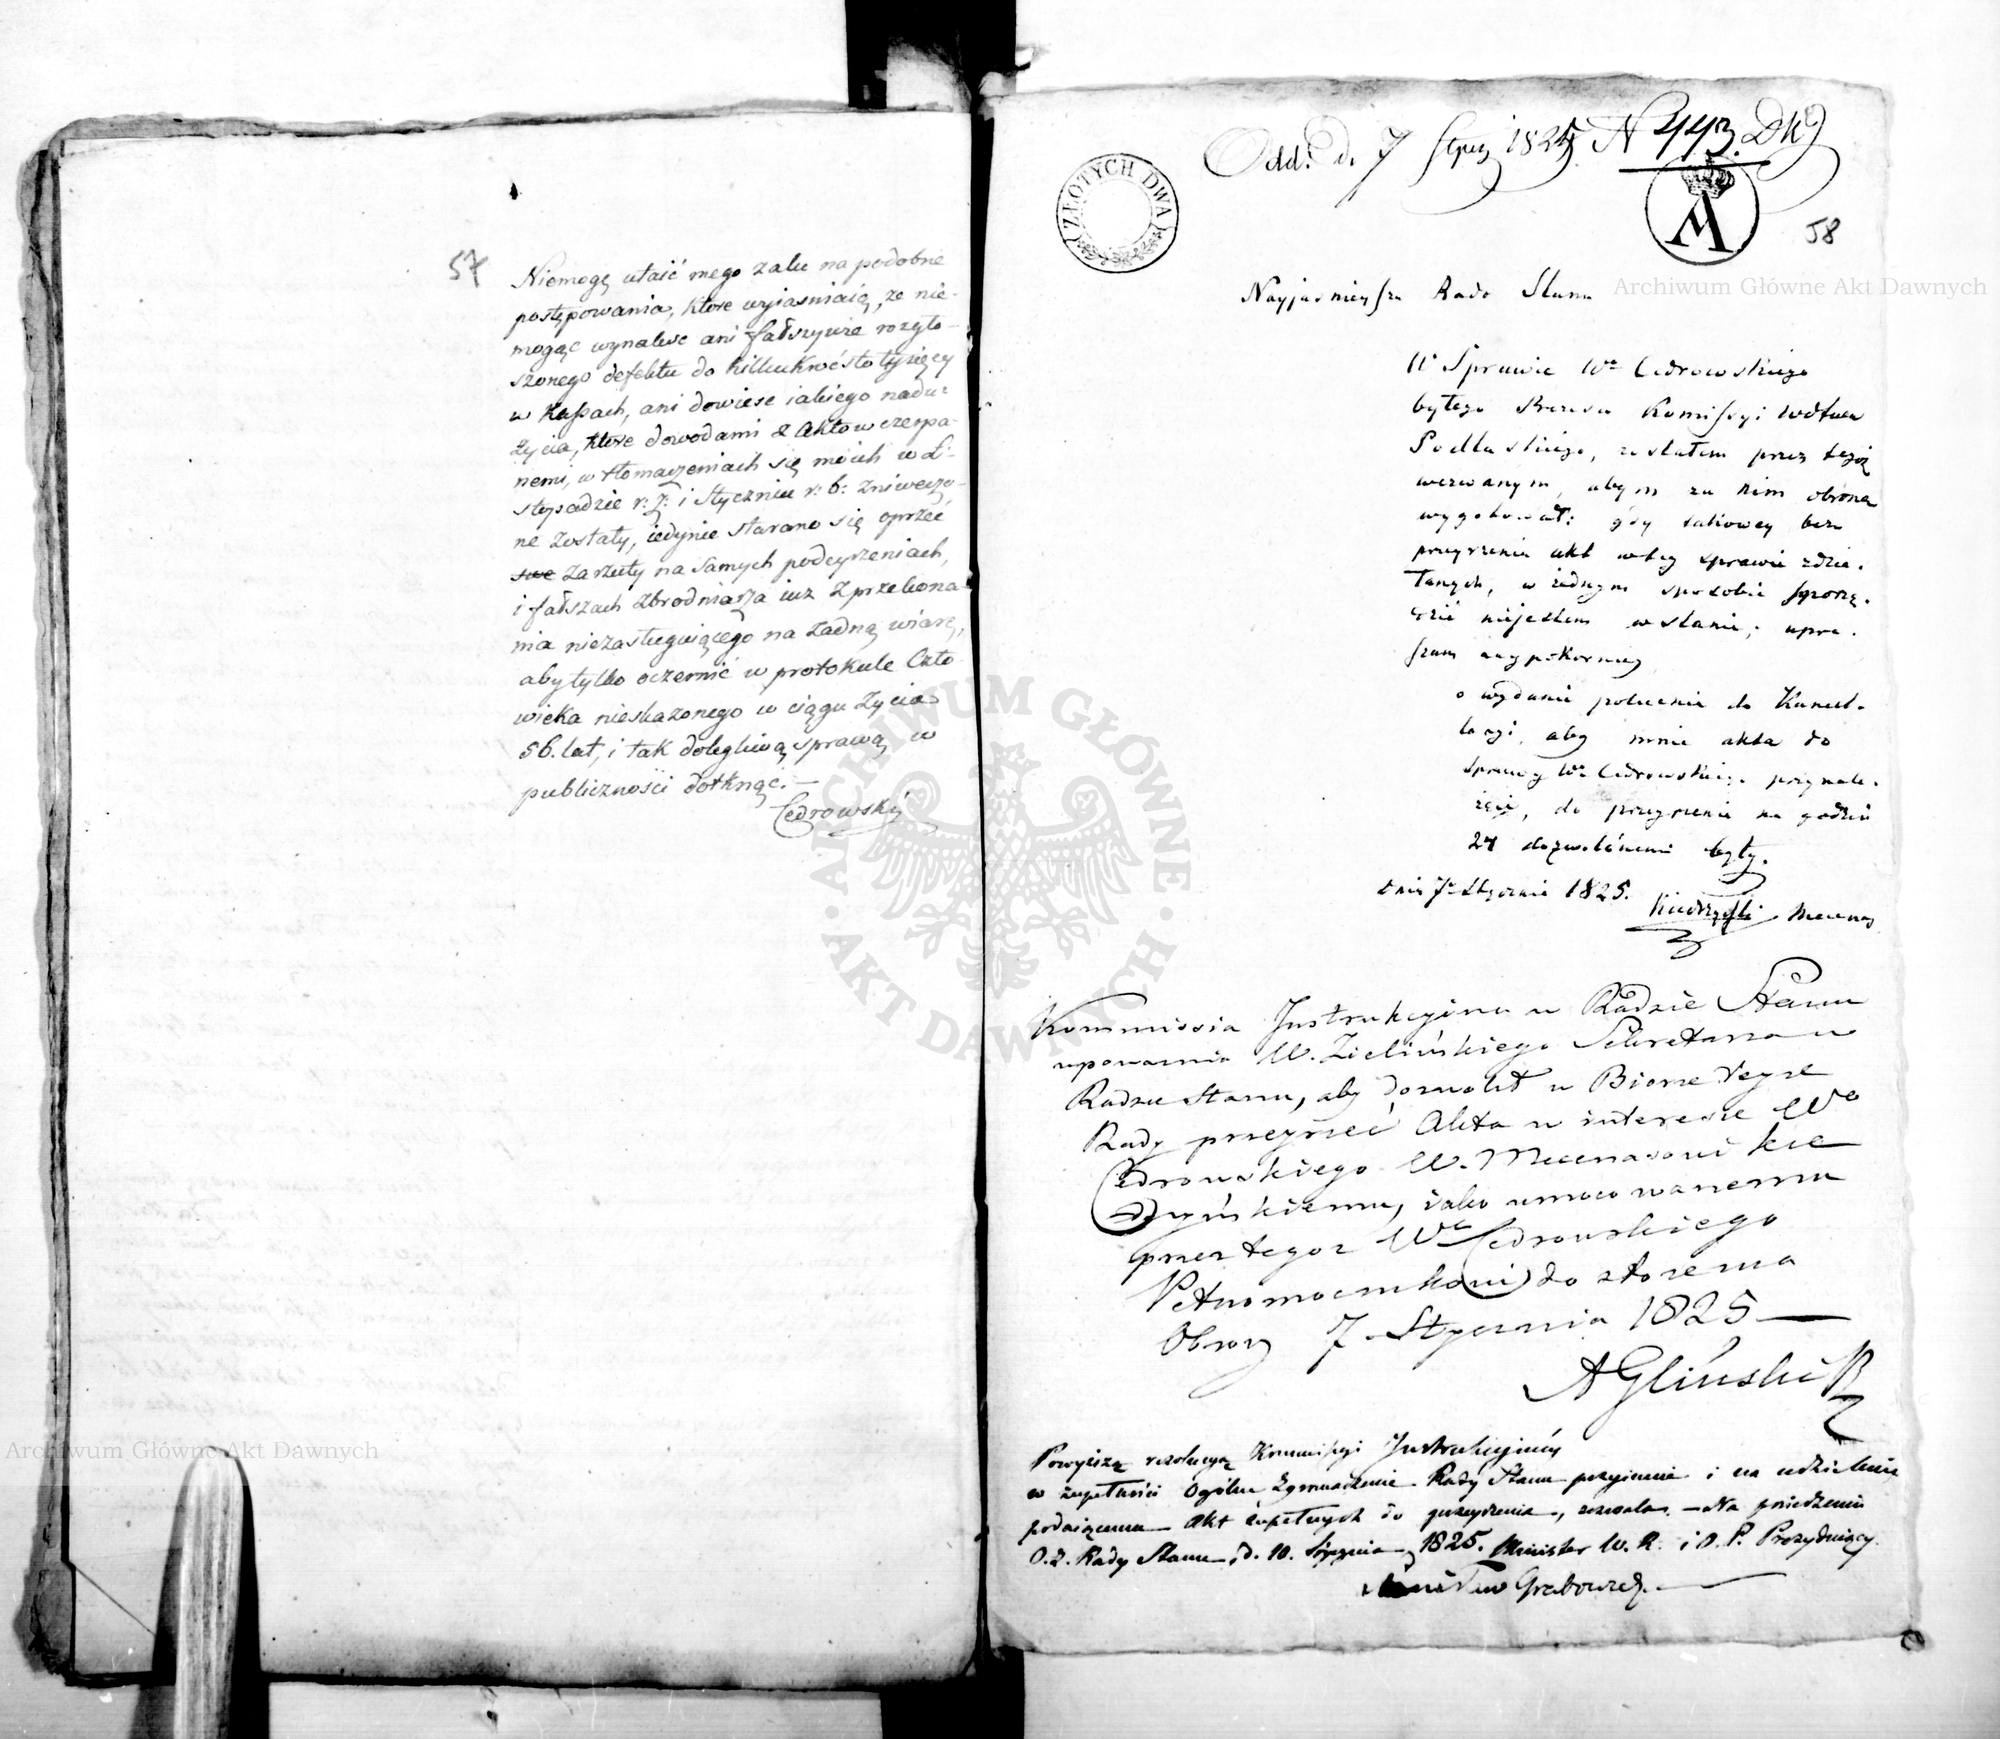 57
Niemogę utaić mego zalu na podobne
postępowania, ktore wyiasniaią, ze nie-
mogąc wynalesc ani fałszywie rozgło-
szonego defektu do kilkukroćstotysięcy
w Kassach, ani dowiesc iakiego nadu-
życia, ktore dowodami z Aktow czerpa-
nemi, w tłomaczeniach się moich w Li-
stopadzie r: z: i Styczniu r: b: zniweczo-
ne zostały, iedynie starano się oprzeć
swe zarzuty na samych podeyrzeniach,
i fałszach zbrodniarza iuz z przekona-
nia niezasługuiącego na żadną wiarę,
aby tylko oczernić w protokule Czło-
wieka nieskazonego w ciągu życia
56. lat, i tak dolegliwą sprawą w
publiczności dotknąć.—
Cedrowski
Odd: d. 7 Stycz 1825 N 443. Dk
ZŁOTYCH DWA
58
Nayjasnieysza Rado Stanu
W Sprawie Wo Cedrowskiego
byłego Prezesa Komissyi Wdztwa
Podlaskiego, zostałem przez tegoż
wezwanym, abym za nim obronę
wygotował: gdy takowey bez
przeyrzenia akt w tey sprawie zdzia-
łanych, w żadnym sposobie sporzą-
dzić niejestem w stanie; upra-
szam naypokorniey
o wydanie polecenia do Kancel-
laryi, aby mnie akta do
sprawy Wo Cedrowskiego przynale-
żące, do przeyrzenia na godzin
24 dozwolonemi były.
dnia 7o Stycznia 1825.
Kiedrzyński Mecenas
Kommissia Instrukcyina w Radzie Stanu
upowaznia W. Zielińskiego Sekretarza w
Radzie Stanu, aby dozwolił w Biorze Teyze
Rady przeyrzeć Akta w interesie Wo
Cedrowskiego W. Mecenasowi Kie
drzyńskiemu, iako umocowanemu
przez tegoz Wo Cedrowskiego
Pełnomocnikowi do złozenia
Obrony 7 Stycznia 1825 —
A Gliński
Powyższą rezolucyą Kommissyi Instrukcyiney
w zupełności Ogólne Zgromadzenie Rady Stanu przyimuie i na udzielenie
podaiącemu Akt zupełnych do przeyrzenia, zezwala. — Na posiedzeniu
O. Z. Rady Stanu, d. 10. Stycznia 1825. Minister W. R. i O. P. Prezyduiący.
Stanisław Grabowski.
Archiwum Główne Akt Dawnych
Archiwum Główne Akt Dawnych
ARCHIWUM GŁÓWNE
AKT DAWNYCH